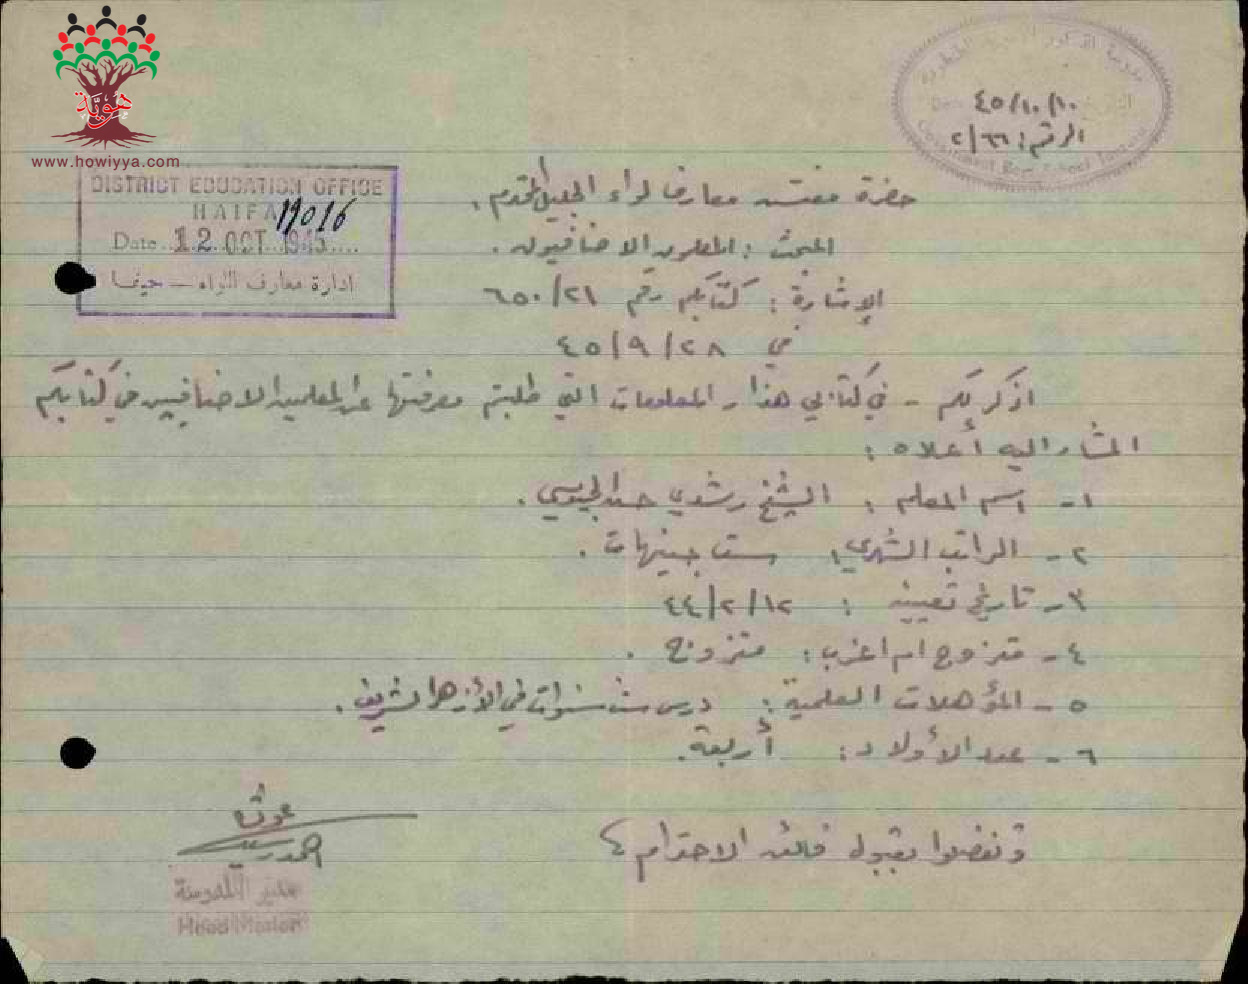 هويّة
www.howiyya.com
٤٥/١٠/١٠
الرقم: ٢/٦٦
Government Boys School
DISTRICT EDUCATION OFFICE
HAIFA
19016
Date 12 OCT 1945
ادارة معارف اللواء — حيفا
حضرة مفتش معارف لواء الجليل المحترم ،
المبحث : المعلمون الاضافيون .
الإشارة : كتابكم رقم ٦٥٠/٢١
في ٤٥/٩/٢٨
اذكر لكم - في كتابي هذا - المعلومات التي طلبتم معرفتها عن المعلمين الاضافيين في كتابكم
المشار اليه أعلاه :
١- اسم المعلم : الشيخ رشدي الجيوسي .
٢- الراتب الشهري : ست جنيهات .
٣- تاريخ تعيينه : ٤٤/٢/١٢
٤- متزوج ام اعزب : متزوج .
٥- المؤهلات العلمية : درس ست سنوات في الأزهر الشريف .
٦- عدد الأولاد : أربعة .
وتفضلوا بقبول فائق الاحترام
احمد
مدير المدرسة
Head Master